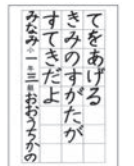 てをあげる
きみのすがたが
すてきだよ
みなみ小一年三組おおうちかの